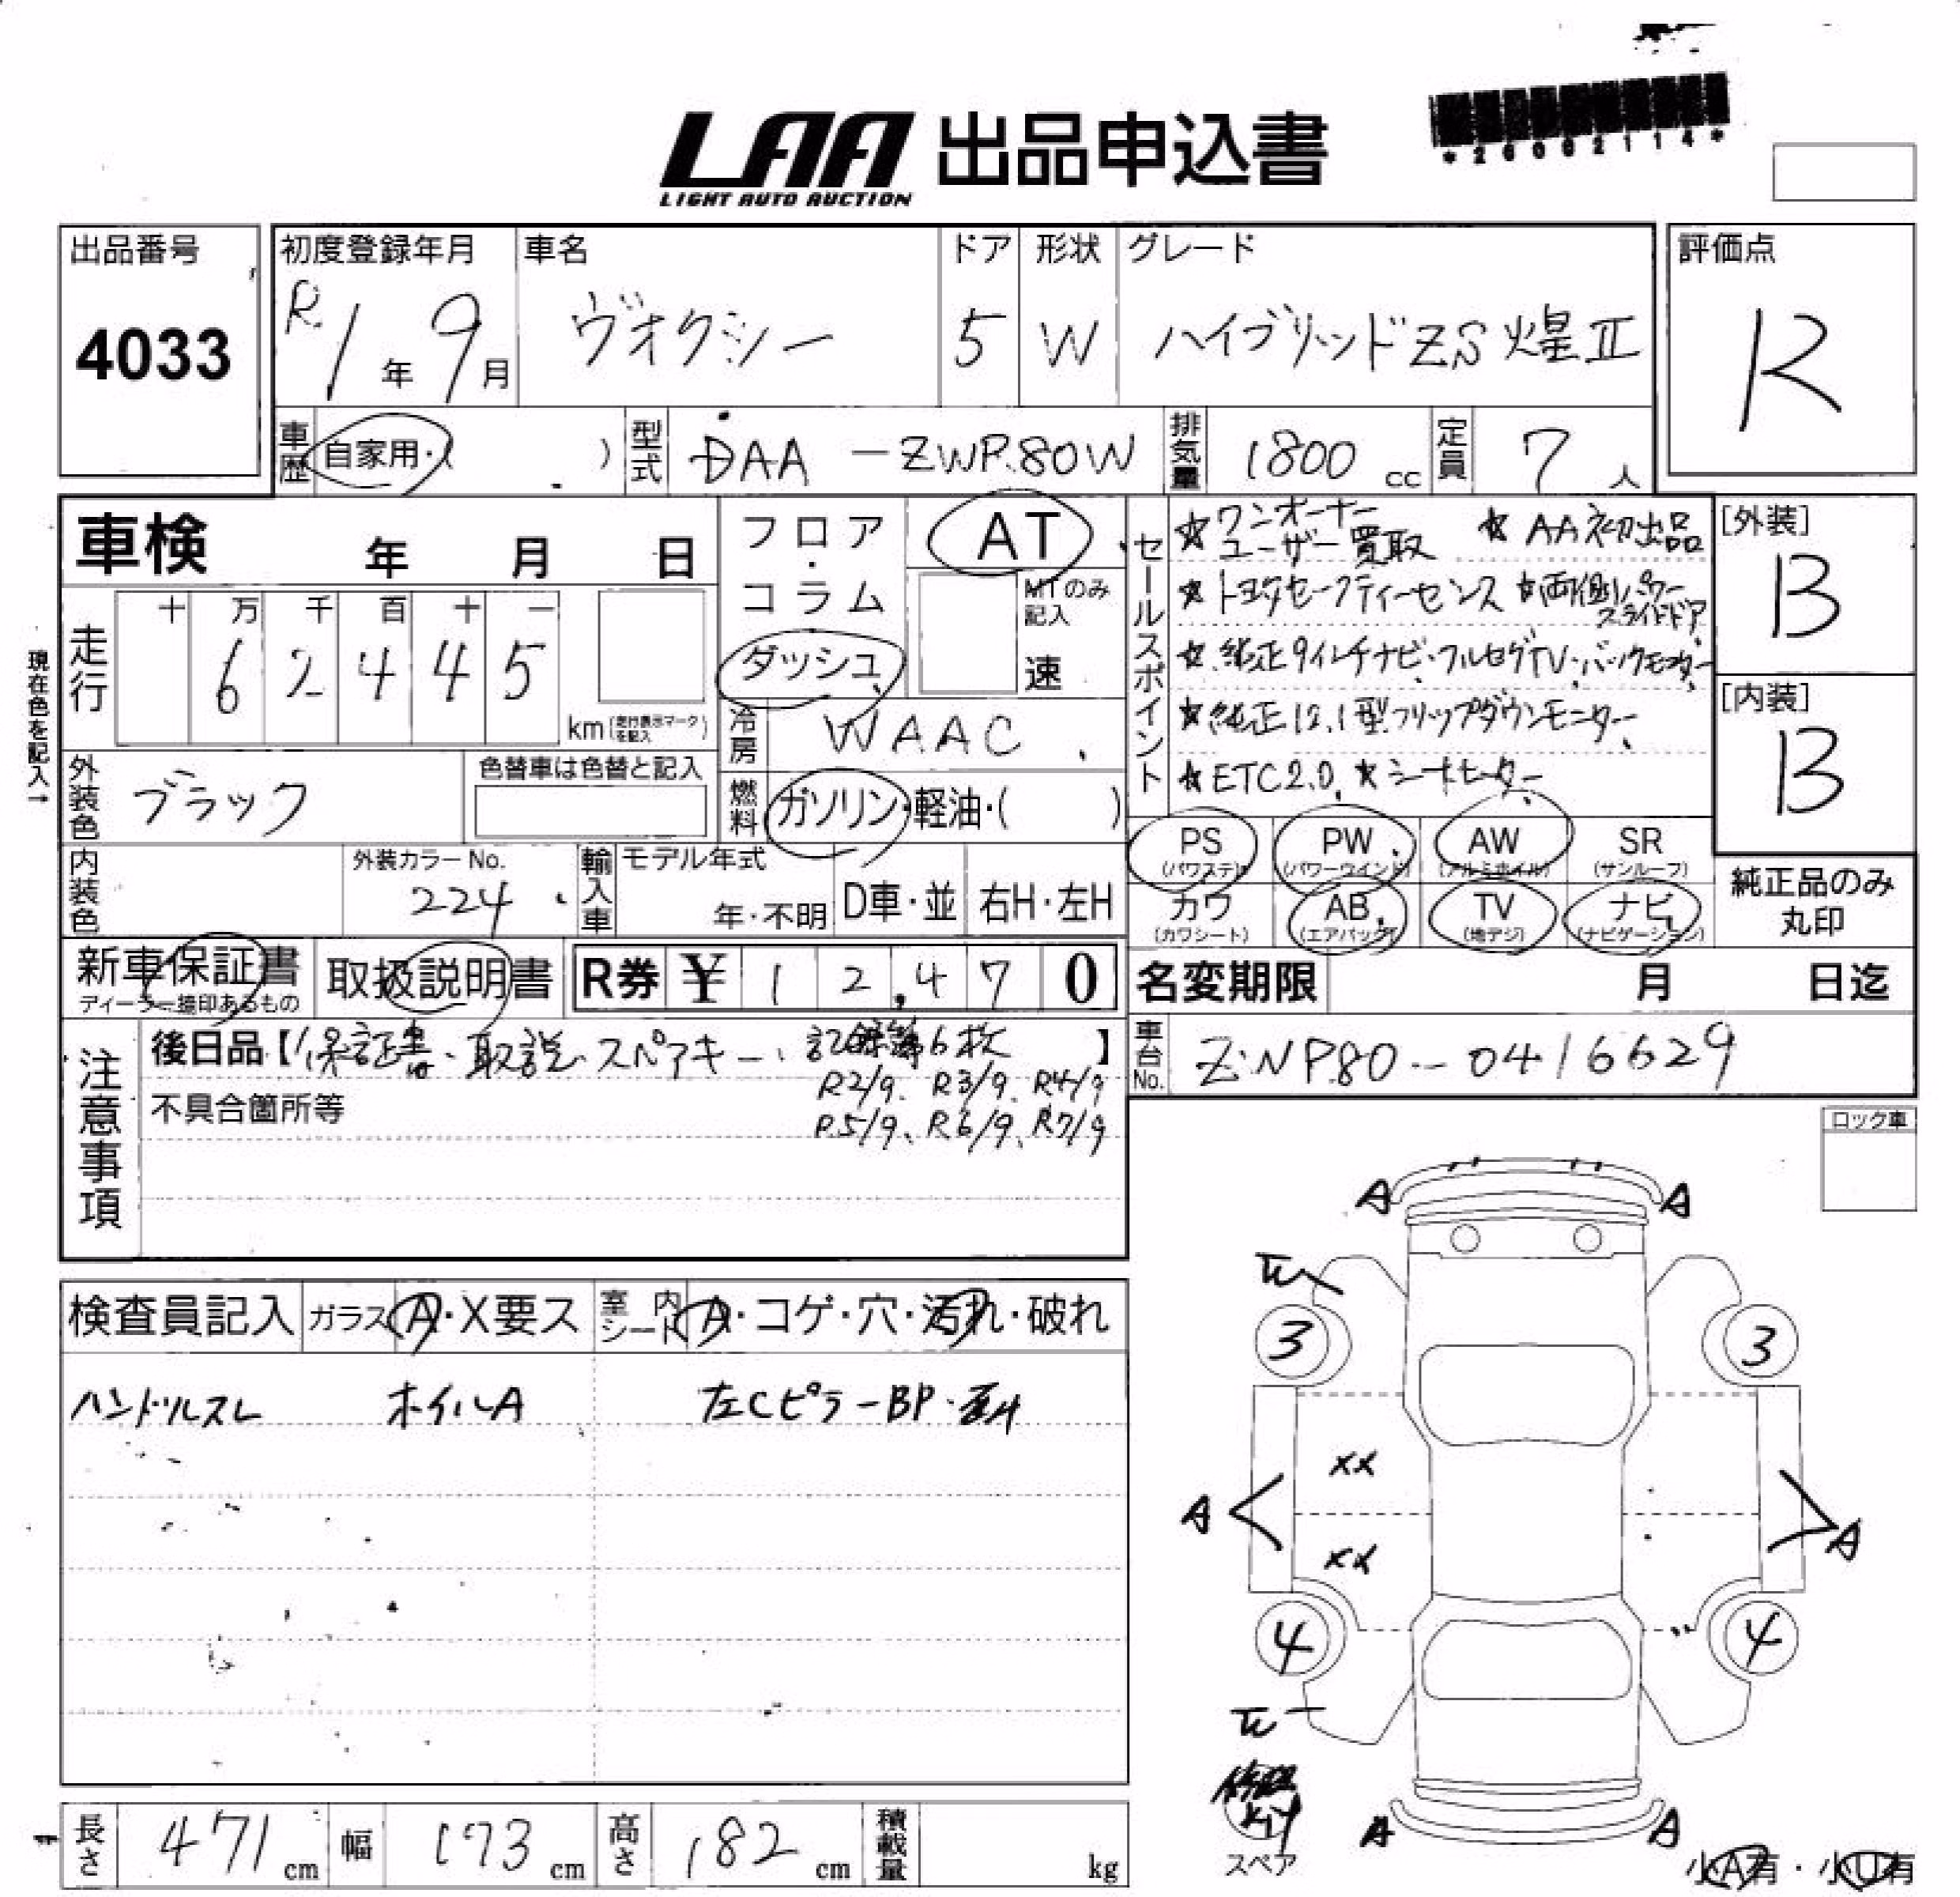 *26002114*
LAA 出品申込書
LIGHT AUTO AUCTION
出品番号
4033
初度登録年月
R1年9月
車名
ヴォクシー
ドア
5
形状
W
グレード
ハイブリッドZS煌Ⅱ
評価点
R
車歴 自家用・( )
型式 DAA-ZWR80W
排気量 1800cc
定員 7人
車検 年 月 日
フロア・コラム
ダッシュ
AT
MTのみ記入
速
走行
十 万 千 百 十 一
6 2 4 4 5
km (走行表示マークを記入)
現在色を記入→
冷房 WAAC
外装色 ブラック
色替車は色替と記入
燃料 ガソリン・軽油・( )
内装色
外装カラーNo.
224
輸入車
モデル年式
年・不明
D車・並
右H・左H
セールスポイント
☆ワンオーナー
ユーザー買取 ☆AA初出品
☆トヨタセーフティーセンス ☆両側パワー
スライドドア
☆純正9インチナビ・フルセグTV・バックモニター
☆純正12.1型フリップダウンモニター
☆ETC2.0 ☆シートヒーター
[外装]
B
[内装]
B
PS (パワステ)
PW (パワーウインド)
AW (アルミホイル)
SR (サンルーフ)
カワ (カワシート)
AB (エアバッグ)
TV (地デジ)
ナビ (ナビゲーション)
純正品のみ
丸印
新車保証書
ディーラー捺印あるもの
取扱説明書
R券 ¥12,470
名変期限 月 日迄
注意事項
後日品【保証書・取説・スペアキー・記録簿6枚】
R2/9、R3/9、R4/9
R5/9、R6/9、R7/9
不具合箇所等
車台No. ZWR80-0416629
ロック車
検査員記入
ガラス A・X要ス
室内シート A・コゲ・穴・汚れ・破れ
ハンドルスレ ホイルA 左CピラーBP・
A A
3 3
XX
A A
XX
4 4
修理
キット
スペア
A A
小A有・小U有
長さ 471cm
幅 173cm
高さ 182cm
積載量 kg